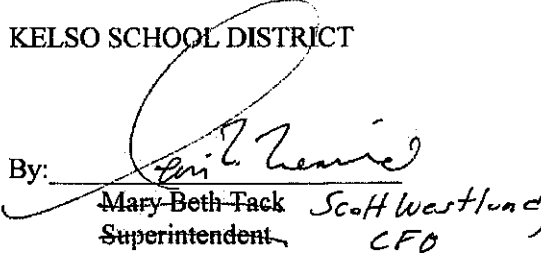 KELSO SCHOOL DISTRICT
By:
Mary Beth Tack Scott Westlund
Superintendent CFO